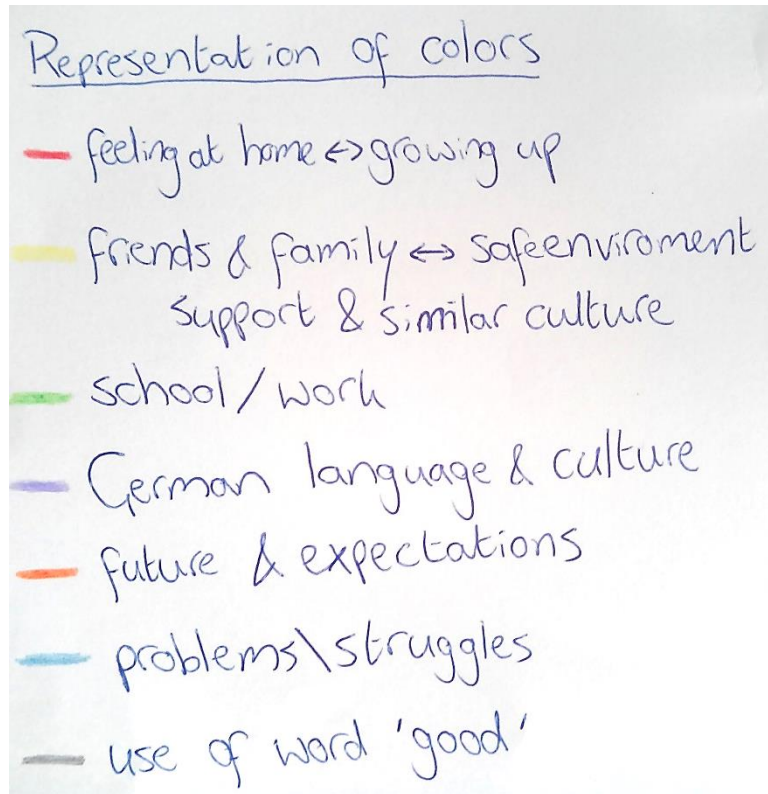 Representation of colors
feeling at home <-> growing up
friends & family <-> safeenviroment
support & similar culture
school/work
German language & culture
future & expectations
problems\struggles
use of word 'good'